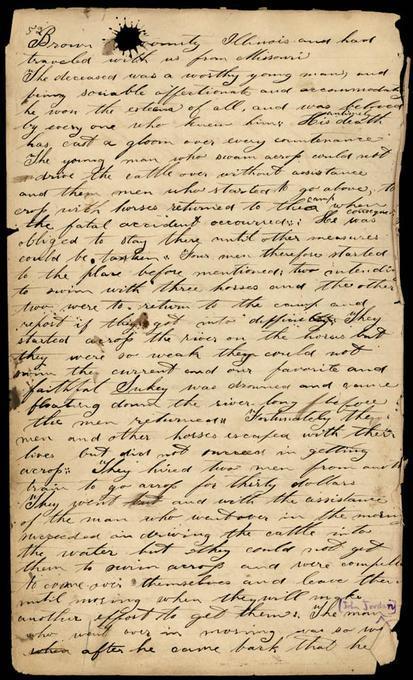 53
Brown County Illinois and had
traveled with us from Missouri
The deceased was a worthy young man, and
being sociable affectionate and accommodati
he won the esteem of all, and was beloved
by every one who knew him; His untimely death
has cast a gloom over every countenance
The young man who swam across could not
drive the cattle over without assistance
and them men who started to go above, to
cross with horses returned to the camp when
the fatal accident occurred; He was
obliged to stay there until other measures
could be taken. Four men therefore started
to the place before mentioned; two intendin
to swim with three horses and the other
two were to return to the camp and
report if they got into difficulty They
started across the river on the horses but
they were so weak they could not
swim the current and our favorite and
faithful Sukey was drowned and came
floating down the river long before
the men returned. Fortunately the
men and other horses escaped with their
lives but did not succeed in getting
across; They hired two men from anoth
train to go across for thirty dollars
They went and with the assistance
of the man who went over in the morn
succeeded in driving the cattle into
the water but they could not get
them to swim across and were compelle
to come over themselves and leave them
until morning when they will make
another effort to get them. The man
(John Jordan)
who went over in morning was so
when after he came back that he